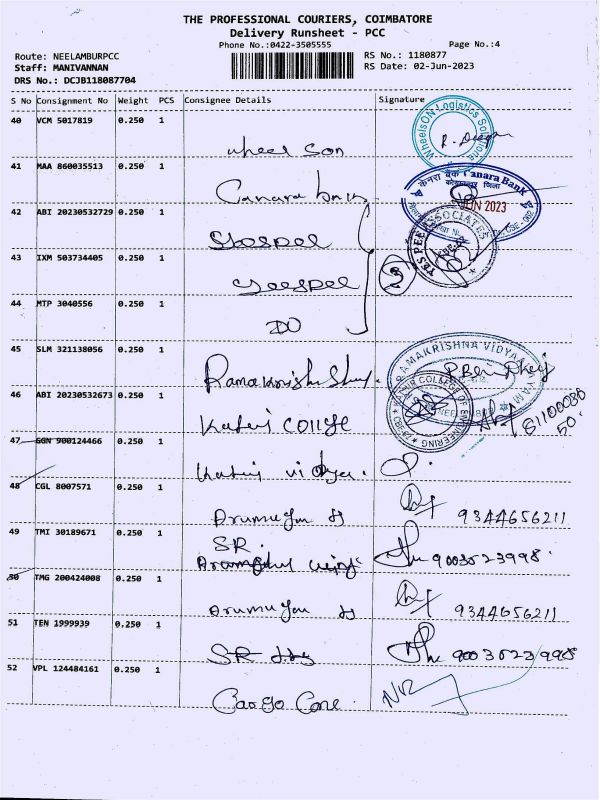 THE PROFESSIONAL COURIERS, COIMBATORE
Delivery Runsheet - PCC
Phone No.:0422-3505555
Page No.:4
Route: NEELAMBURPCC
Staff: MANIVANNAN
DRS No.: DCJB118087704
RS No.: 1180877
RS Date: 02-Jun-2023
S No Consignment No Weight PCS Consignee Details Signature
40 VCM 5017819 0.250 1
wheel son
WheelsON Logistics Solutions
41 MAA 860035513 0.250 1
Canara
केनरा बैंक Canara Bank
JUN 2023
42 ABI 20230532729 0.250 1
YES PEE ASSOCIATES
43 IXM 503734405 0.250 1
44 MTP 3040556 0.250 1
DO
45 SLM 321138056 0.250 1
RAMAKRISHNA VIDYALAYAM
46 ABI 20230532673 0.250 1
Kathir COllege
KATHIR COLLEGE OF ENGINEERING
47 GGN 900124466 0.250 1
Kathir vidya.
48 CGL 8007571 0.250 1
9344656211
49 TMI 30189671 0.250 1
SR.
9003523998
50 TMG 200424008 0.250 1
9344656211
51 TEN 1999939 0.250 1
SR
9003523998
52 VPL 124484161 0.250 1
Cargo Care